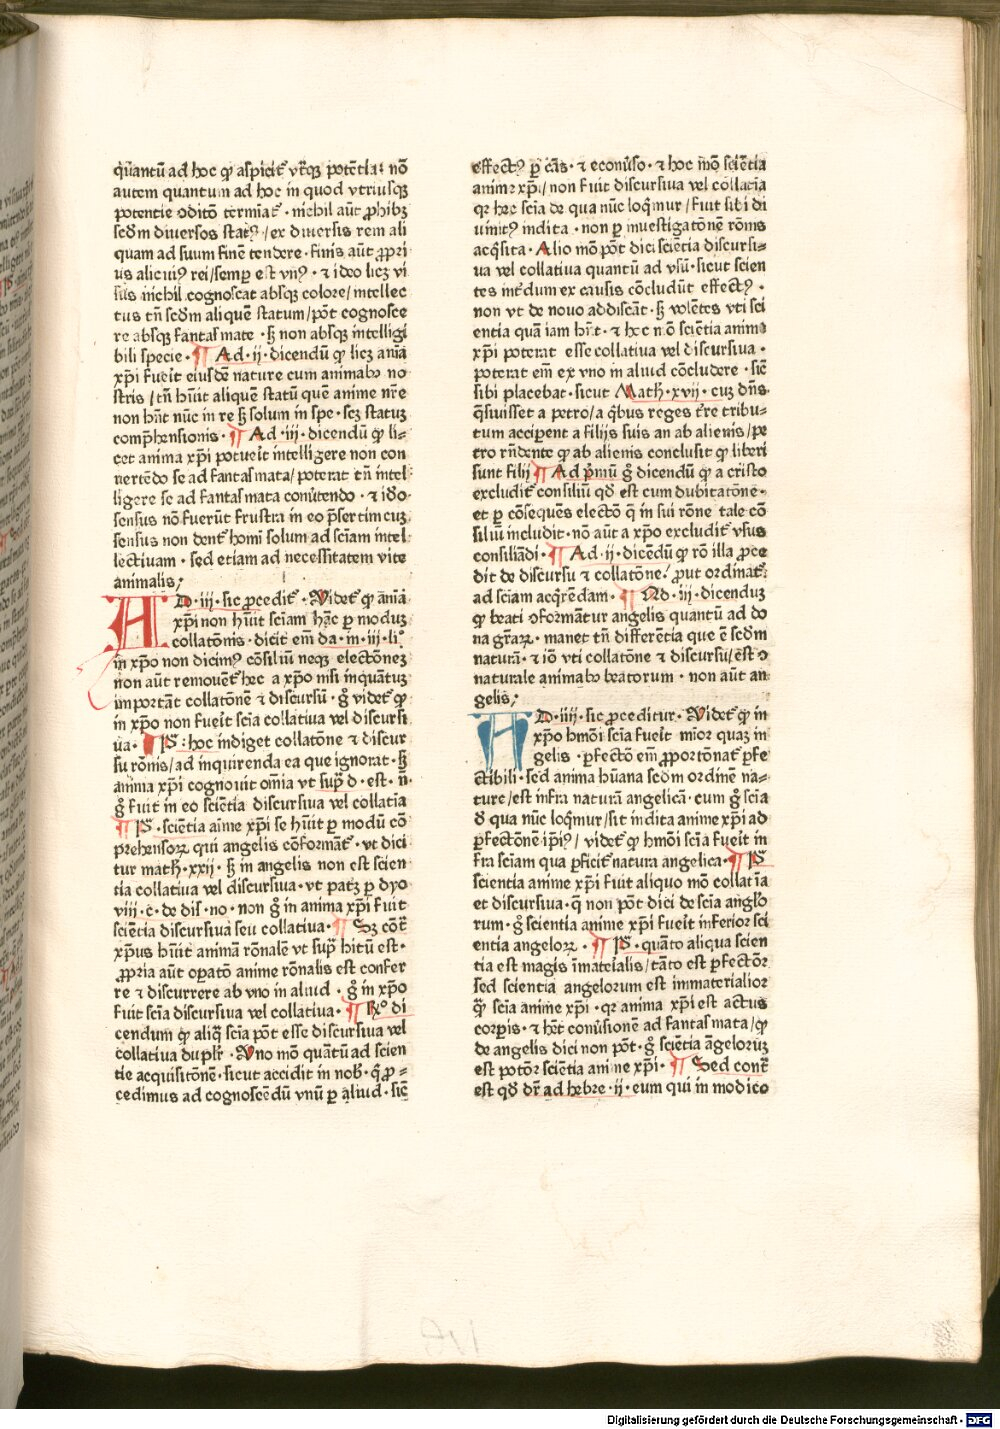 quantū ad hoc ꝙ aspicit᷑ vtrāqꝫ potētiaꝫ nō
autem quantum ad hoc in quod vtriusqꝫ
potentie ↄditō termiat᷑ · nichil aūt ꝓhibꝫ
scḋm diuersos statꝰ / ex diuersis rem ali
quam ad suum finē tendere · finis aūt ꝓpri
us alicuiꝰ rei / semꝑ est vnꝰ · ⁊ ideo licꝫ vi
sus nichil cognoscat absqꝫ colore / intellec
tus tn̄ scḋm aliquē statum / pōt cognosce
re absqꝫ fantasmate · sꝫ non absqꝫ intelligi
bili specie · ¶ Ad · ij · dicendū ꝙ licꝫ aīa
xp̄i fuerit eiusdē nature cum animabꝰ no
stris / tn̄ hūit aliquē statū quē anime nr̄e
non hn̄t nūc in re sꝫ solum in spe · scꝫ statuꝫ
comp̄hensionis · ¶ Ad · iij · dicendū ꝙ li-
cet anima xp̄i potuerit intelligere non con
uertēdo se ad fantasmata / poterat tn̄ intel
ligere se ad fantasmata conūtendo · ⁊ iō
sensus nō fuerūt frustra in eo p̄sertim cuꝫ
sensus non dent᷑ homī solum ad sciam intel
lectiuam · sed etiam ad necessitatem vite
animalis /
AD · iij · sic ꝓcedit᷑ · Videt᷑ ꝙ aīa
xp̄i non hūit sciam hāc ꝑ moduꝫ
collatōnis · dicit em̄ da · in · iij · li°
in xp̄o non dicimꝰ cōsiliū neqꝫ electōneꝫ
non aūt remouent᷑ hec a xp̄o nisi inquantuꝫ
importāt collatōnē ⁊ discursū · g̊ videt᷑ ꝙ
in xp̄o non fuerit scīa collatiua vel discursi
ua · ¶ PS : hoc indiget collatōne ⁊ discur
su rōnis / ad inquirenda ea que ignorat · sꝫ
anima xp̄i cognouit om̄ia vt sup̄ d · est · n̄ ·
g̊ fuit in eo sciētia discursiua vel collatīa
¶ PS · sciētia aīme xp̄i se hūit ꝑ modū cō
prehensorꝝ qui angelis cōformāt᷑ · vt dici
tur math · xxij · sꝫ in angelis non est scien
tia collatiua vel discursiua · vt patꝫ ꝑ dyo
viii · c · de diī · no · non g̊ in anima xp̄i fuit
sciētia discursiua seu collatiua · ¶ Sꝫ cōt᷑
xp̄us hūit animā rōnalē vt sup̄ hītū est ·
ꝓpria aūt opatō anime rōnalis est confer
re ⁊ discurrere ab vno in aliud · g̊ in xp̄o
fuit scīa discursiua vel collatiua · ¶ R° di
cendum ꝙ aliq̄ scīa pōt esse discursiua vel
collatiua duplr̄ · Vno mō quātū ad scien
tie acquisitōnē · sicut accidit in nob̄ · q̄ ꝓ=
cedimus ad cognoscēdū vnū ꝑ aliud · sic̄
effectꝰ ꝑ cās · ⁊ econūso · ⁊ hoc mō sciētia
anime xp̄i / non fuit discursiua vel collatīa
qꝛ hec scīa de qua nūc loq̄mur / fuit sibi di
uinitꝰ indita · non ꝑ inuestigatōnem rōnis
acq̄sita · Alio mō pōt dici sciētia discursi=
ua vel collatiua quantū ad vsū · sicut scien
tes intēdum ex causis cōcludūt effectꝰ ·
non vt de nouo addiscāt · sꝫ volētes vti sci
entia quā iam hn̄t · ⁊ hec nō sciētia anime
xp̄i poterat esse collatiua vel discursiua ·
poterat em̄ ex vno in aliud cōcludere · sic̄
sibi placebat · sicut Math · xvij · cuꝫ dn̄s ·
q̄siuisset a petro / a q̄bus reges t̄re tribu=
tum acciperent a filijs suis an ab alienis / pe
tro rn̄dente ꝙ ab alienis conclusit ꝙ liberi
sunt filij ¶ Ad p̄mū g̊ dicendū ꝙ a cristo
excludit᷑ consiliū qḋ est cum dubitatōne ·
et ꝑ cōsequēs electō q̄ in sui rōne tale cō
siliū includit · nō aūt a xp̄o excludit᷑ vsus
consiliādi · ¶ Ad · ij · dicēdū ꝙ rō illa ꝓce
dit de discursu ⁊ collatōne / ꝓut ordinat᷑
ad sciam acq̄rēdam · ¶ Ad · iij · dicenduꝫ
ꝙ beati ↄformātur angelis quantū ad do
na gr̄arꝝ · manet tn̄ differētia que ē scḋm
naturā · ⁊ iō vti collatōne ⁊ discursu / est ↄ
naturale animabꝰ beatorum · non aūt an
gelis /
AD · iiij · sic ꝓceditur · Videt᷑ ꝙ in
xp̄o hmōi scīa fuerit mīor quaꝫ in
gelis · ꝑfectō em̄ ꝓportōnat᷑ ꝑfe
ctibili · sed anima hūana scḋm ordinē na=
ture / est infra naturā angelicā · cum g̊ scīa
d̄ qua nūc loq̄mur / sit indita anime xp̄i ad
ꝑfectōnē ip̄iꝰ / videt᷑ ꝙ hmōi scīa fuerit in
fra sciam qua ꝑficit᷑ natura angelica · ¶ PS
scientia anime xp̄i fuit aliquo mō collatīa
et discursiua · q̄ non pōt dici de scīa anglo
rum · g̊ scientia anime xp̄i fuerit inferior sci
entia angelorꝝ · ¶ PS · quāto aliqua scien
tia est magis īmaterialis / tāto est ꝑfectōr
sed scientia angelorum est immaterialior
q̄ scīa anime xp̄i · qꝛ anima xp̄i est actus
corꝑis · ⁊ hēt conūsionē ad fantasmata / ꝙ
de angelis dici non pōt · g̊ sciētia āgeloruꝫ
est potōr sciētia anime xp̄i · ¶ Sed cont᷑
est qḋ dr̄ ad hebre · ij · eum qui in modico
Digitalisierung gefördert durch die Deutsche Forschungsgemeinschaft - DFG